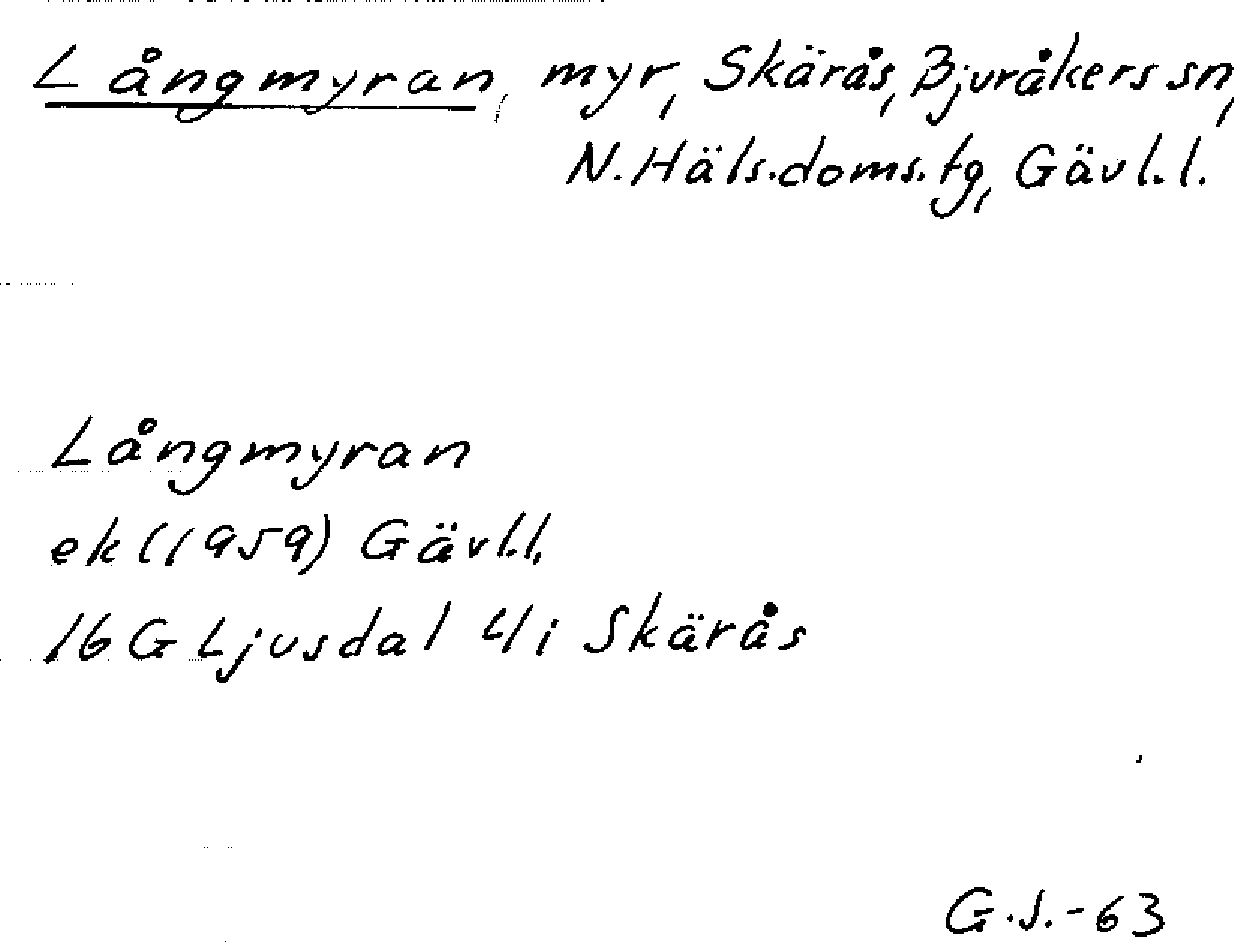 Långmyran, myr, Skärås, Bjuråkers sn,
N. Häls. doms. tg, Gävl. l.
Långmyran
ek (1959) Gävl. l.
16 G Ljusdal 4 i Skärås
G. J. - 63